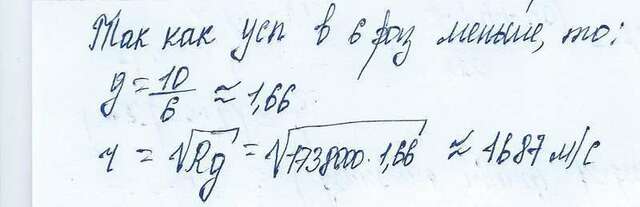 Так как усп в 6 раз меньше, то:
g = 10/6 ≈ 1,66
υ = √Rg = √1738000·1,66 ≈ 1687 м/с